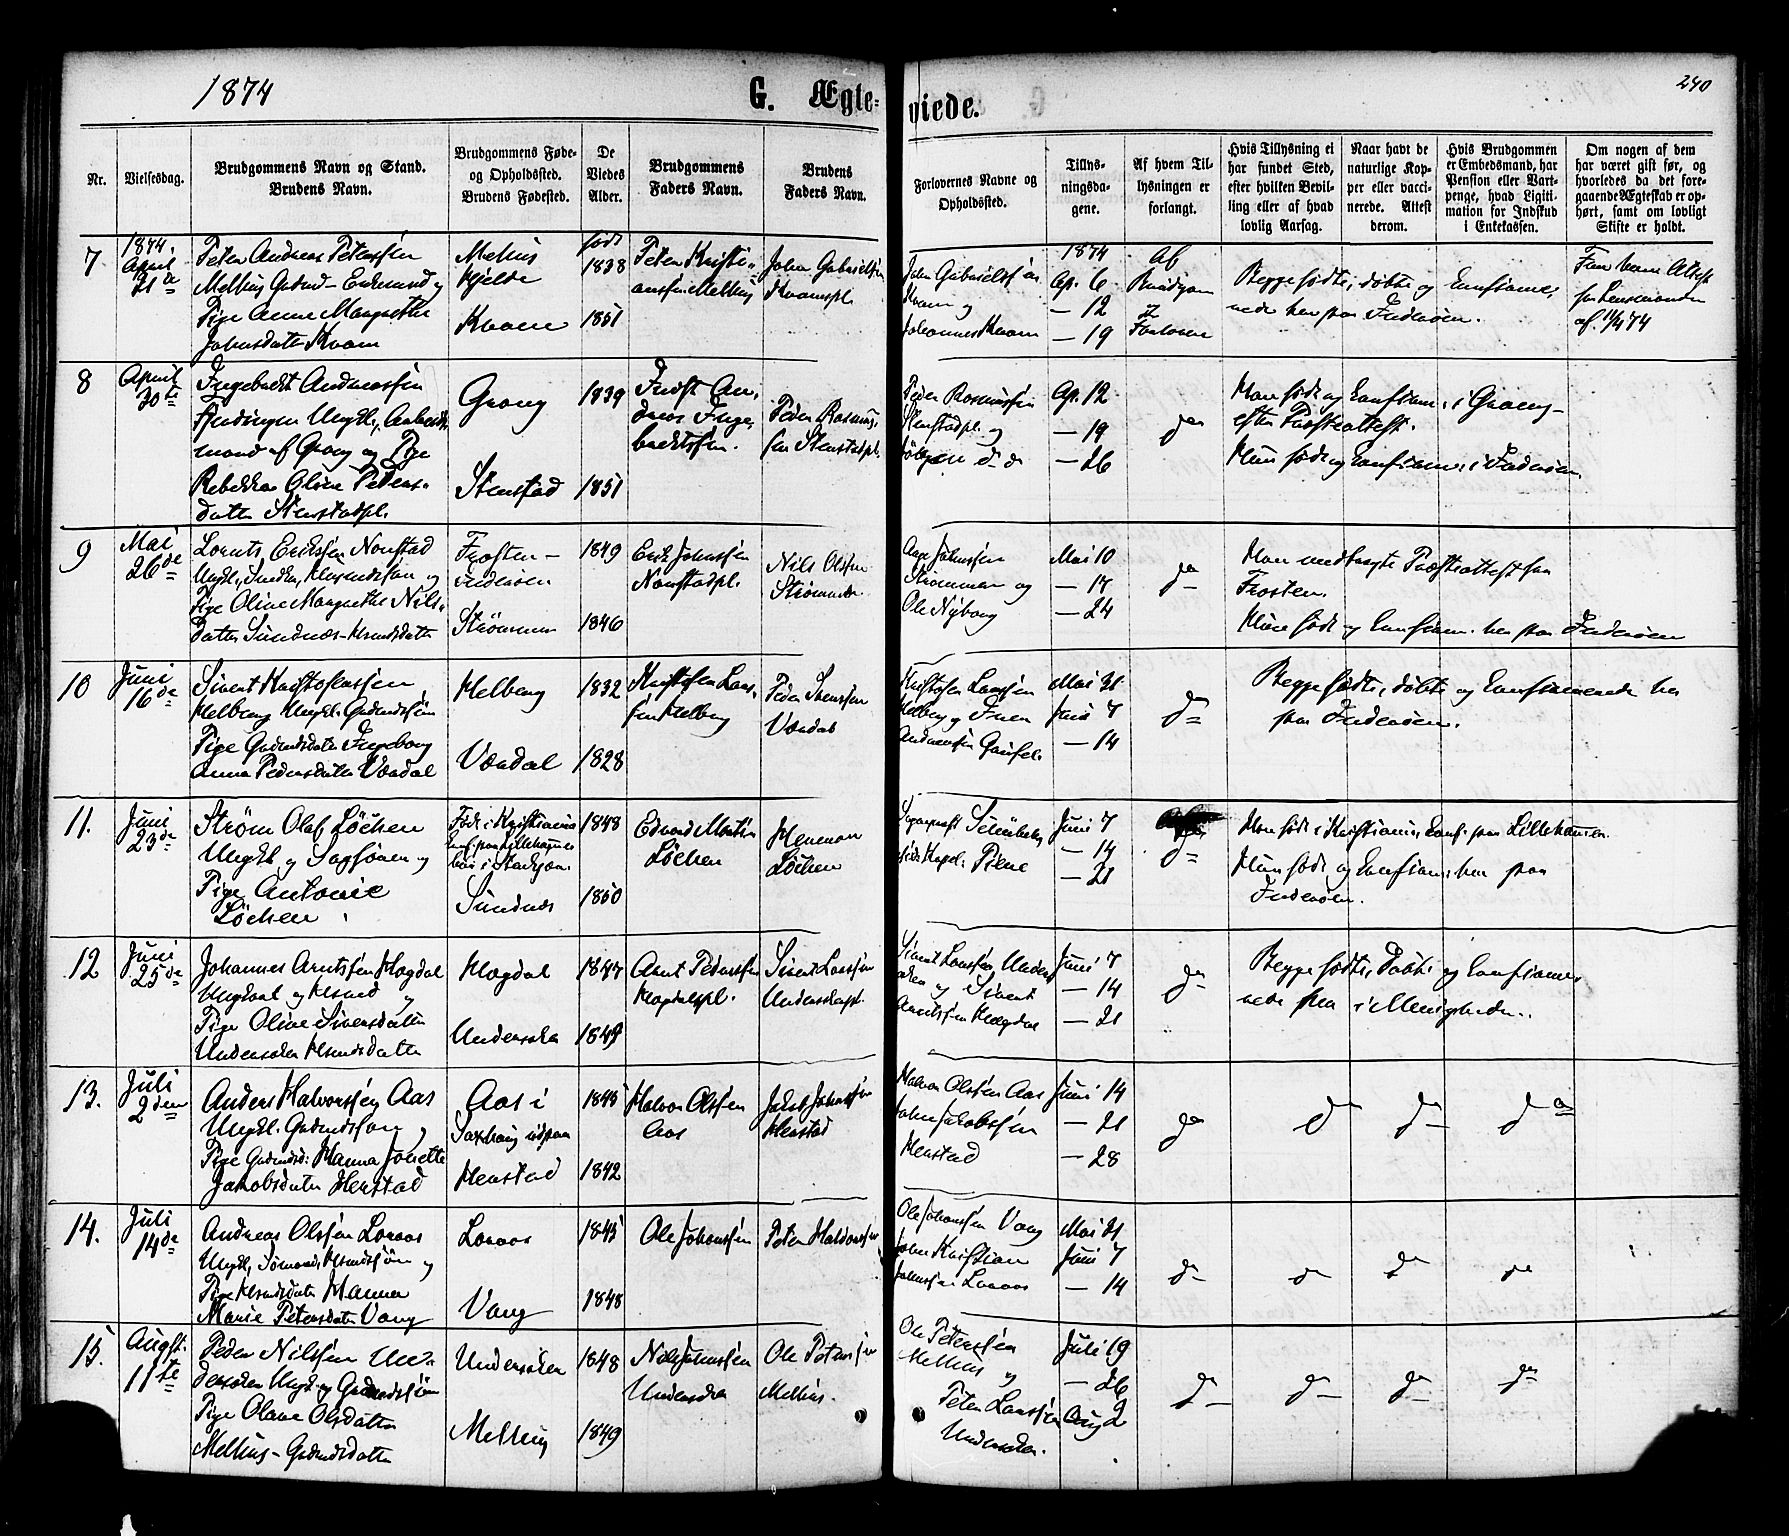 1874
G. Ægte-
viede.
240
Nr.
Vielsesdag.
Brudgommens Navn og Stand.
Brudens Navn.
Brudgommens Føde-
og Opholdssted.
Brudens Fødested.
De
Viedes
Alder.
Brudgommens
Faders Navn.
Brudens
Faders Navn.
Forlovernes Navne og
Opholdssted.
Tillys-
ningsda-
gene.
Af hvem Til-
lysningen er
forlangt.
Hvis Tillysning ei
har fundet Sted,
efter hvilken Bevil-
ling eller af hvad
lovlig Aarsag.
Naar havt de
naturlige Kop-
per eller vacci-
nerede. Attest
derom.
Hvis Brudgommen
er Embedsmand, har
Pension eller Vart-
penge, hvad Ligiti-
mation for Indskud
i Enkekassen.
Om nogen af dem
har været gift før, og
hvorledes da det fore-
gaaende Ægteskab er op-
hørt, samt om lovligt
Skifte er holdt.
7
1874.
April
21de
Peter Andreas Peterssen
Melhus Gaard- Enkemand og
Pige Anne Margrethe
Johnsdatter Kvam
Melhus
Hjelde
Kvam
født
1838
1851
Peter Kristi-
anssen Melhus
John Gabrielsen
Kvamspl.
John Gabrielssen
Kvam og
Johannes Kvam
1874
Ap. 6
— 12
— 19
Af
Brudgom
Forlover
Begge fødte, døbte og konfirme-
rede her paa Inderøen.
af 11/4 74
8
April
30te
Ingebrekt Andreassen
Ungkl., Arbeids-
mand af Grong og Pige
Rebekka Oline Peders-
datter Stenstadpl.
Grong
Stenstad
1839
1851
Indst An-
dreas Inge-
brektssen.
Peder Rasmus-
sen Stenstadpl.
Peder Rasmussen
Stenstadpl. og
Ap. 12
— 19
— 26
do
Han født og konfirm. i Grong
efter Præsteattest.
Hun født og konfirm. i Inderøen
9
Mai
26de
Lornts Erikssen Nonstad
Ungkl., Husmandssøn og
Pige Oline Margrethe Nils-
datter Sundnæs-Husmdsdatter
Frosten-
Inderøen
Strømmen
1849
1846
Erik Johnssen
Nonstadpl.
Nils Olssen
Strømmen
Johnssen
Strømmen og
Ole Nyborg
Mai 10
— 17
— 24
do
Han medbragte Præsteattest fra
Frosten.
Hun født og konfirm. her paa Inderøen
10
Juni
16de
Sivert Kristoferssen
Helberg Ungkl. Gaardmdssøn
Pige Gaardmdsdatter Ingeborg
Anna Pedersdatter Værdal
Helberg
Værdal
1832
1828
Kristofer Lars-
sen Helberg
Peder Stenssen
Værdal
Kristofer Larssen
Helberg og
Andreassen
Mai 31
Juni 7
— 14
do
Begge fødte, døbte og konfirmerede her
paa Inderøen.
11.
Juni
23de
Strøm Olaf Løchen
Ungkl. og Sagfører og
Pige Antonie
Løchen
Født i Kristiania
Konf. paa Lillehammer
bor i Stenkjær
Sundnæs
1848
1850
Edvard Martin
Løchen
Herman
Løchen
Juni 7
— 14
— 21
do
Han født i Kristiania, konf. paa Lillehammer
Hun født og konfirm. her paa
Inderøen.
12
Juni
25de
Johannes Arntssen Hægdal
Ungkarl og Husmd og
Pige Oline Sivertsdatter
Undersaker Husmdsdatter
Hægdal
Undersaker
1847
1849
Arnt Pederssen
Hægdalspl.
Sivert Larssen
Undersakerpl.
Sivert Larssen Under-
saker og Sivert
Arntssen Hægdal
Juni 7
— 14
— 21
do
Begge fødte, døbte og konfirme-
rede her i Menigheden.
13.
Juli
2den
Anders Halvorssen Aas
Ungkl. Gaardmdssøn og
Pige Gaardmdsd. Hanna Jonette
Jakobsdatter Henstad
Aas i
Henstad
1845
1842
Halvor Olssen
Aas
Jakob Johanssen
Henstad
Halvor Olssen Aas
John Jakobssen
Henstad
Juni 14
— 21
— 28
do
do
do
do
14.
Juli
14de
Andreas Olssen Loraas
Ungkl., Sømand, Husmdssøn og
Pige Husmdsdatter Hanna
Marie Petersdatter Vang
Loraas
Vang
1845
1848
Ole Johanssen
Peter Haldorssen
Ole Johanssen Vang
John Kristian
Johanssen Loraas
Mai 31
Juni 7
— 14
do
do
do
do
15.
Augst.
11te
Peder Nilssen Un-
dersaker Ungkl. og Gaardmdssøn
Pige Olava Olsdatter
Melhus-Gaardmdsdatter
Undersaker
Melhus
1848
1849
Nils Johnssen
Undersaker
Ole Peterssen
Melhus.
Ole Peterssen
Melhus
og
Peter Larssen
Undersaker.
Juli 19
— 26
Aug 2
do
do
do
do